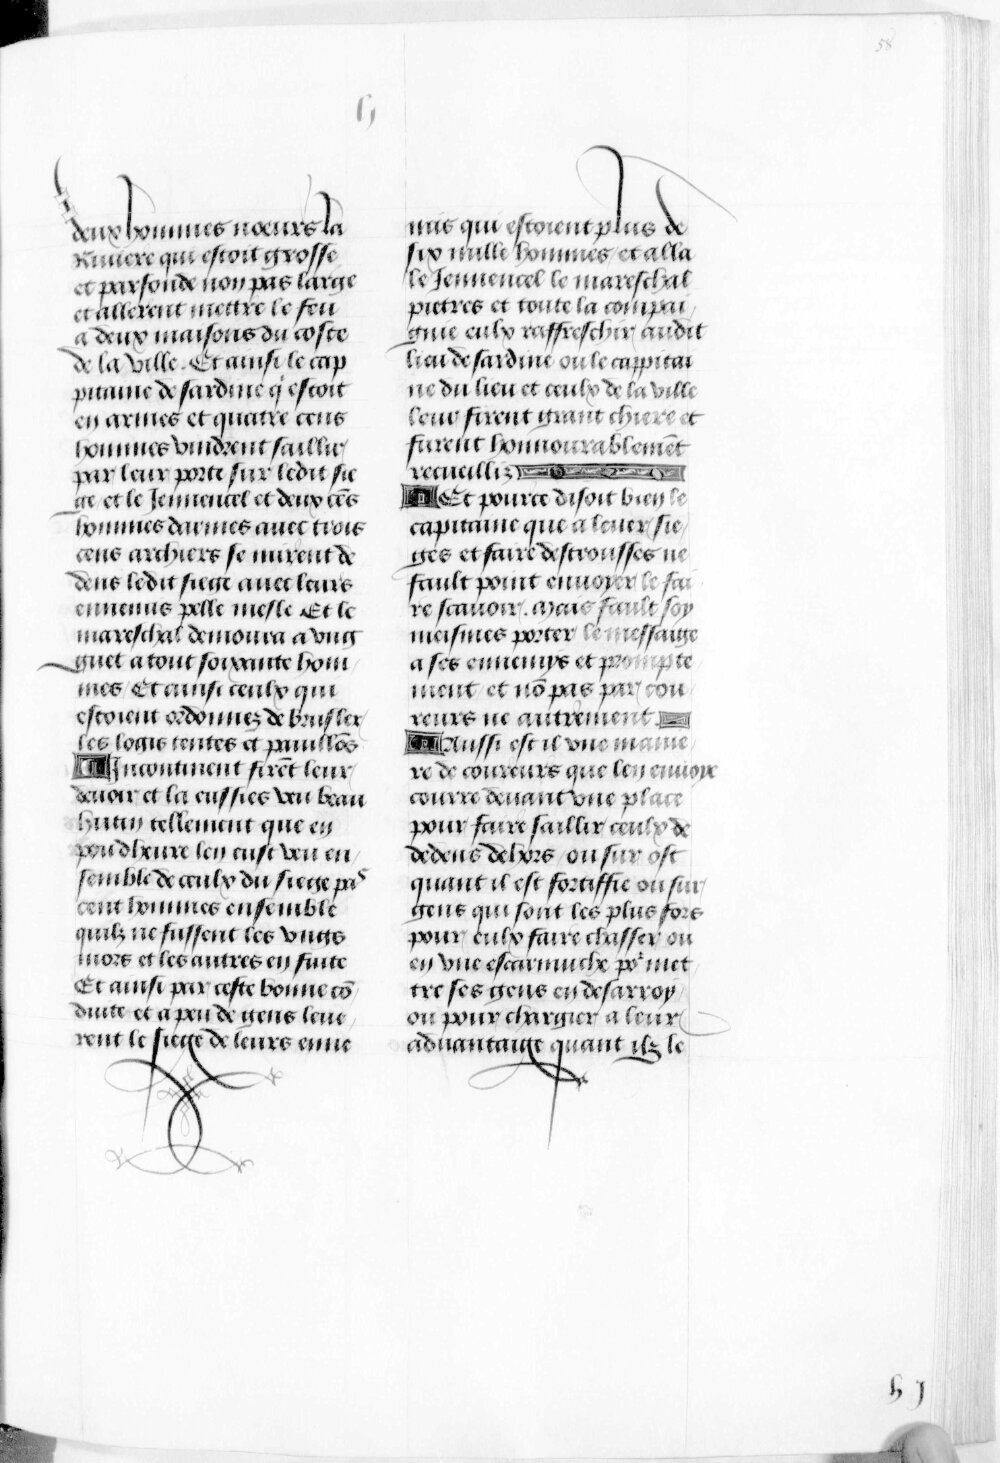 58
h
deux hommes noeurs la
Riviere qui estoit grosse
et parfonde non pas large
et allerent mettre le feu
a deux maisons du coste
de la ville. Et ainsi le cap
pitaine de sardine q estoit
en armes et quatre cens
hommes vindrent saillir
par leur porte sur ledit sie
ge / et le Jennencel et deux cẽs
hommes darmes avec trois
cens archiers se mirent de
dens ledit siege avec leurs
ennemis pelle mesle Et le
mareschal demoura a ung
guet a tout soixante hom
mes / Et ainsi ceulx qui
estoient ordonnez de brusler
les logis tentes et pavillõs
Incontinent firẽt leur
devoir et la eussies veu beau
hutin tellement que en
pou dheure len eust veu en
semble de ceulx du siege pas
cent hommes ensemble
quilz ne fussent les ungs
mors et les autres en fuite
Et ainsi par ceste bonne cõ
duite et a peu de gens leve
rent le siege de leurs enne
mis qui estoient plus de
six mille hommes / et alla
le Jennencel le mareschal
pietres et toute la compai
gnie eulx raffreschir audit
lieu de sardine ou le cappitai
ne du lieu et ceulx de la ville
leur firent grant chiere et
furent honnourablemẽt
recueilliz
Et pource disoit bien le
capitaine que a lever sie
ges et faire destrousses ne
fault point envoyer le fai
re scavoir. Mais fault soy
meismes porter le messaige
a ses ennemys et prompte
ment / et nõ pas par cou
reurs ne autrement
Aussi est il une manie
re de coureurs que len envoye
courre devant une place
pour faire saillir ceulx de
dedens dehors / ou sur ost
quant il est fortiffie ou sur
gens qui sont les plus fors
pour eulx faire chasser ou
en une escarmuche po' met
tre ses gens en desarroy
ou pour chargier a leur
advantaige quant ilz le
h j